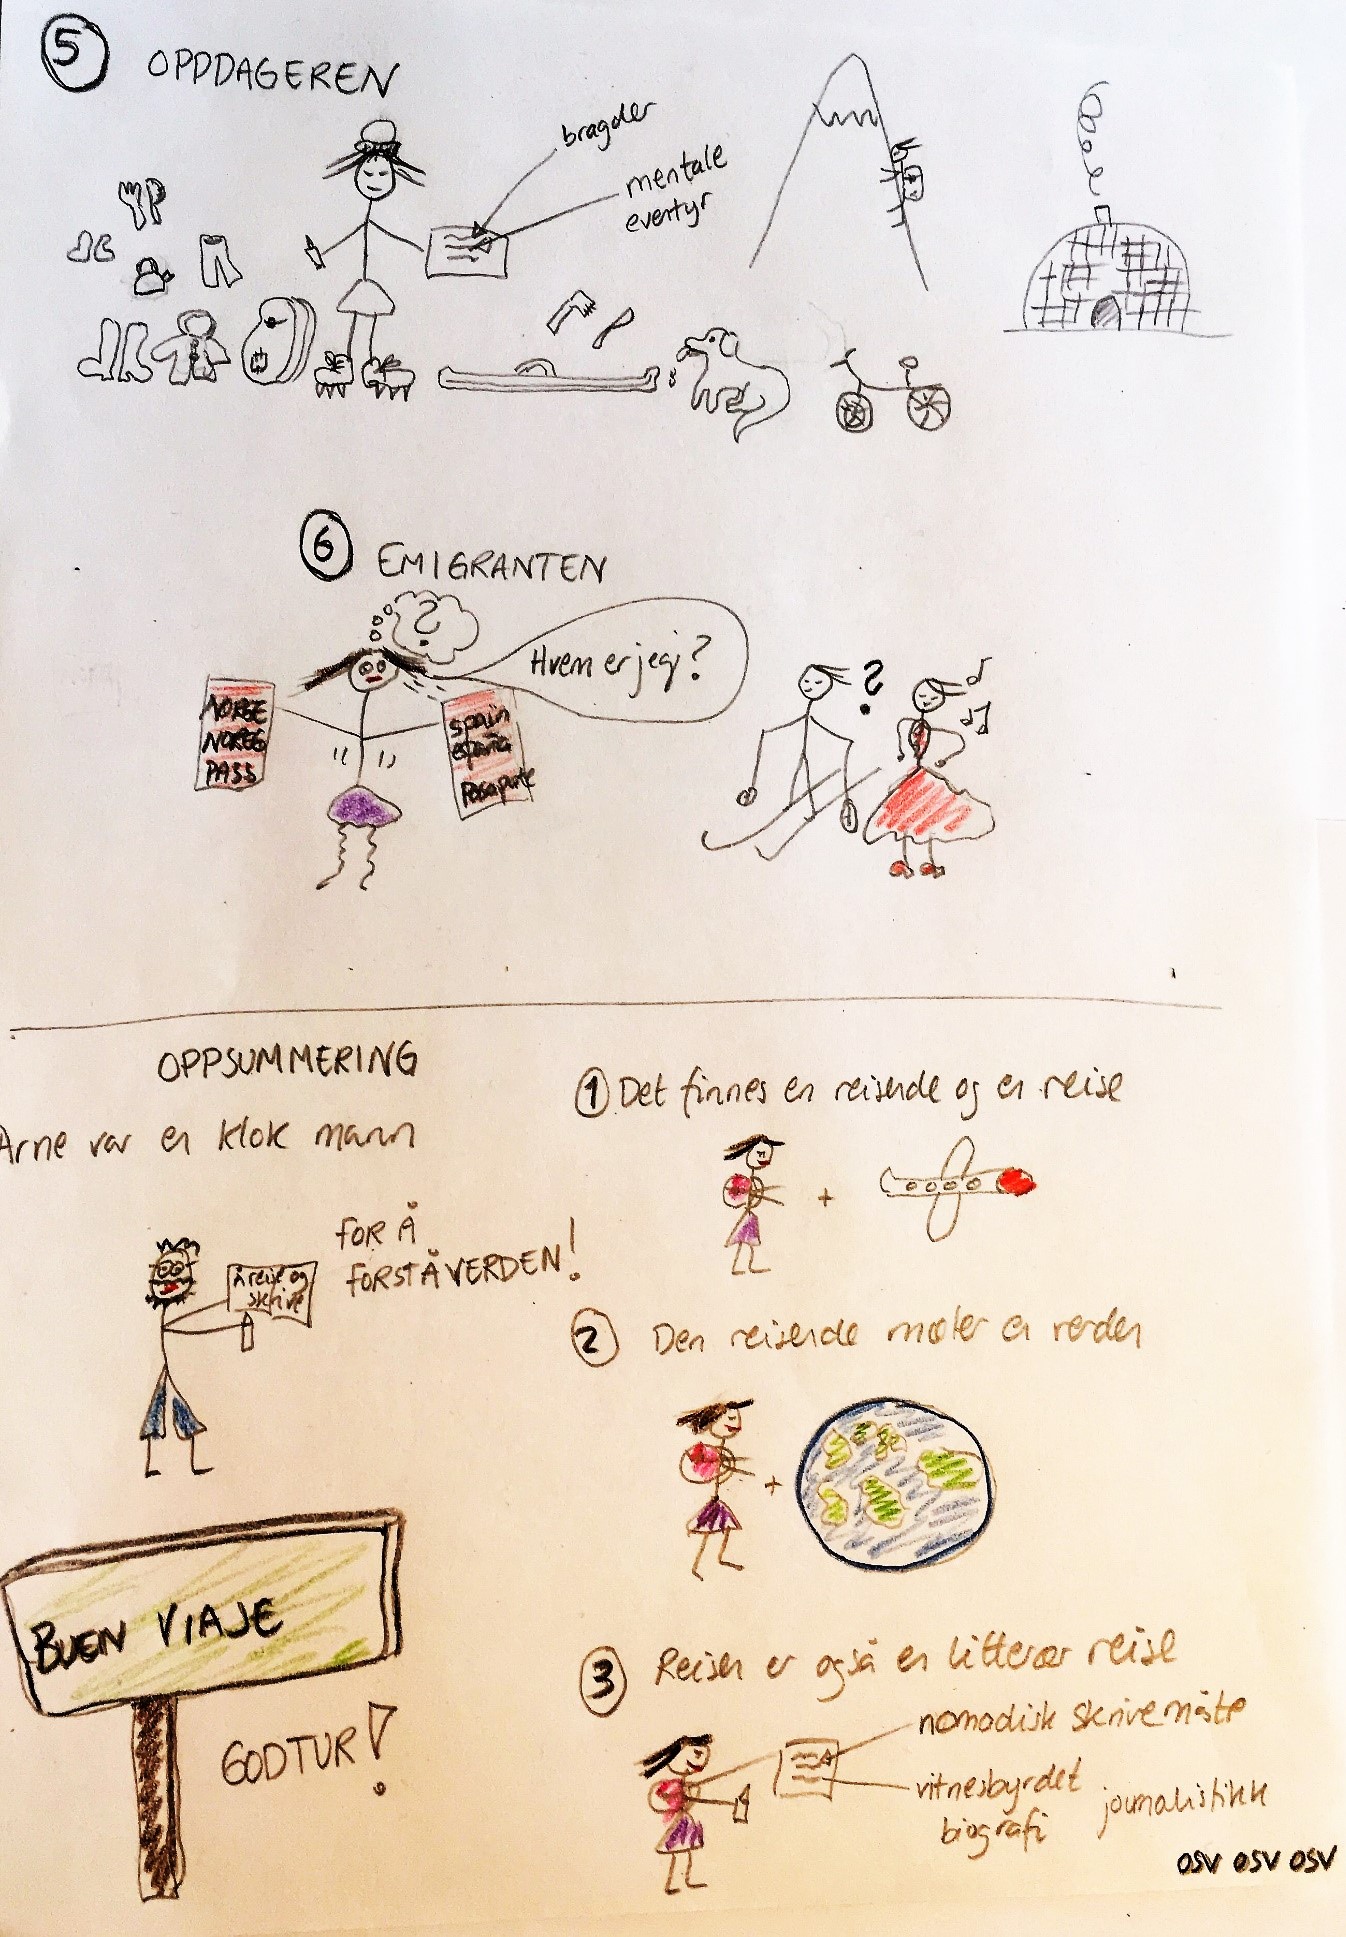 5 OPPDAGEREN
bragder
mentale
eventyr
6 EMIGRANTEN
?
Hvem er jeg?
NORGE
NOREG
PASS
spain
españa
Pasaporte
?
OPPSUMMERING
Arne var en klok mann
Å reise og
skrive
FOR Å
FORSTÅ VERDEN!
BUEN VIAJE
GOD TUR!
1 Det finnes en reisende og en reise
+
2 Den reisende møter en verden
+
3 Reisen er også en litterær reise
nomadisk skrivemåte
vitnesbyrdet
biografi
journalistikk
OSV OSV OSV